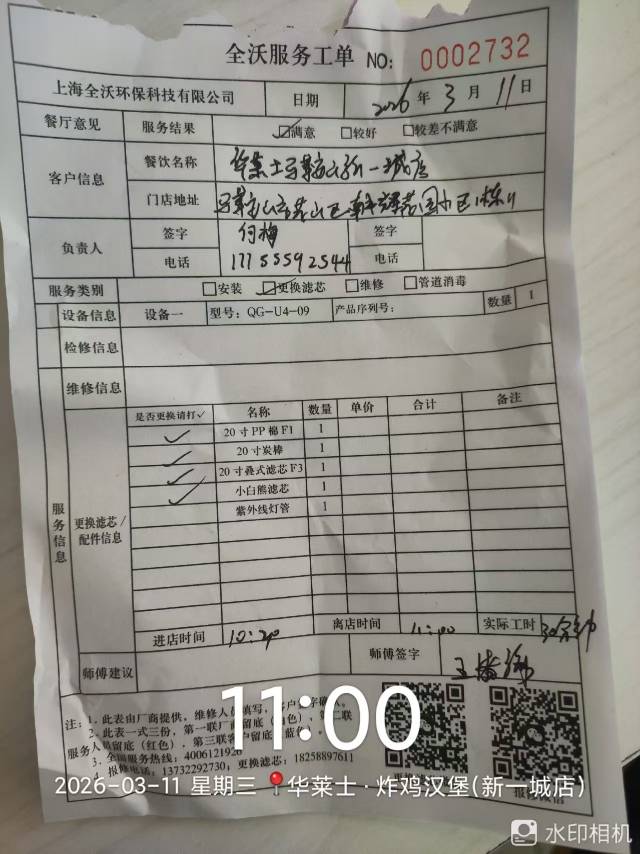 全沃服务工单 NO: 0002732
上海全沃环保科技有限公司 日期 2026 年 3 月 11 日
餐厅意见 服务结果 ☑满意 □较好 □较差不满意
客户信息 餐饮名称 华莱士马鞍山新一城店
门店地址 马鞍山市花山区
负责人 签字 付梅 签字
电话 17755592544 电话
服务类别 □安装 ☑更换滤芯 □维修 □管道消毒
设备信息 设备一 型号: QG-U4-09 产品序列号: 数量 1
检修信息
维修信息
服务信息
更换滤芯/配件信息
是否更换请打✓ 名称 数量 单价 合计 备注
✓ 20寸PP棉F1 1
✓ 20寸炭棒 1
✓ 20寸叠式滤芯F3 1
✓ 小白熊滤芯 1
紫外线灯管 1
进店时间 10:30 离店时间 11:00 实际工时 30分钟
师傅建议 师傅签字
注: 1、此表由厂商提供，维修人员填写，客户签字确认。
2、此表一式三份，第一联厂商留底（白色），第二联
服务人员留底（红色），第三联客户留底（蓝色）。
3、全国服务热线: 4006121926
4、报修电话: 13732292730; 更换滤芯: 18258897611
报修微信
11:00
2026-03-11 星期三 华莱士·炸鸡汉堡(新一城店)
水印相机